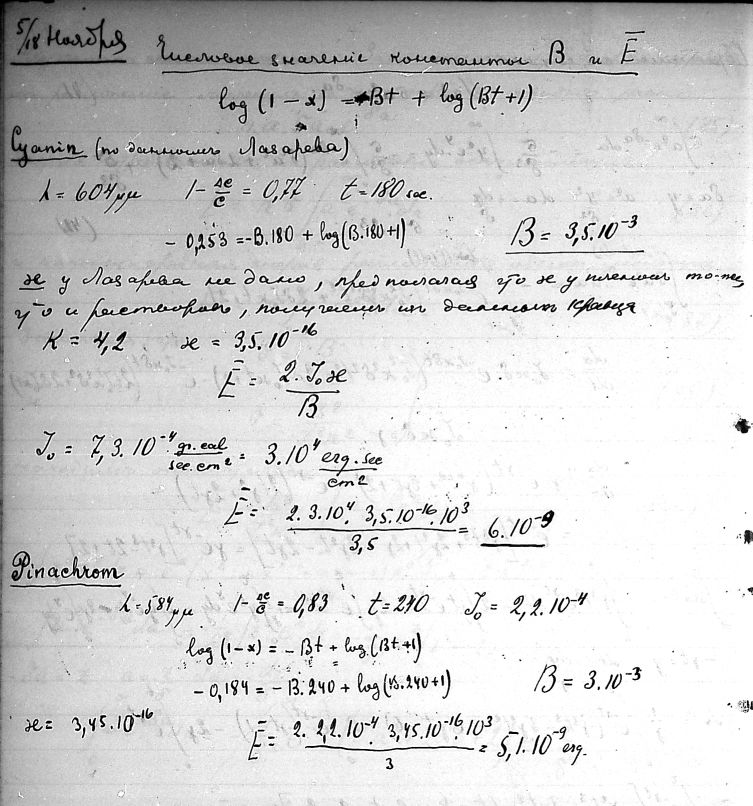 5/18 Ноября Числовое значенiе константы B и E̅
log (1 − x) = −Bt + log (Bt + 1)
Cyanin (по даннымъ Лазарева)
λ = 604 μμ 1 − Δc/c = 0,77 t = 180 sec.
− 0,253 = −B.180 + log(B.180+1) B = 3,5.10⁻³
ϰ у Лазарева не дано, предполагая что ϰ у пленокъ то-же,
что и растворовъ, получаемъ изъ данныхъ Кравца
K = 4,2 ϰ = 3,5.10⁻¹⁶
E̅ = 2.J₀ϰ / B
J₀ = 7,3.10⁻⁴ gr.cal / sec.cm² = 3.10⁴ erg.sec / cm²
E̅ = 2.3.10⁴. 3,5.10⁻¹⁶.10³ / 3,5 = 6.10⁻⁹
Pinachrom
λ = 584 μμ 1 − Δc/c = 0,83 t = 240 J₀ = 2,2.10⁻⁴
log (1−x) = − Bt + log.(Bt.+1)
− 0,184 = − B.240 + log (B.240+1) B = 3.10⁻³
ϰ = 3,45.10⁻¹⁶ E̅ = 2. 2,2.10⁻⁴. 3,45.10⁻¹⁶.10³ / 3 = 5,1.10⁻⁹ erg.